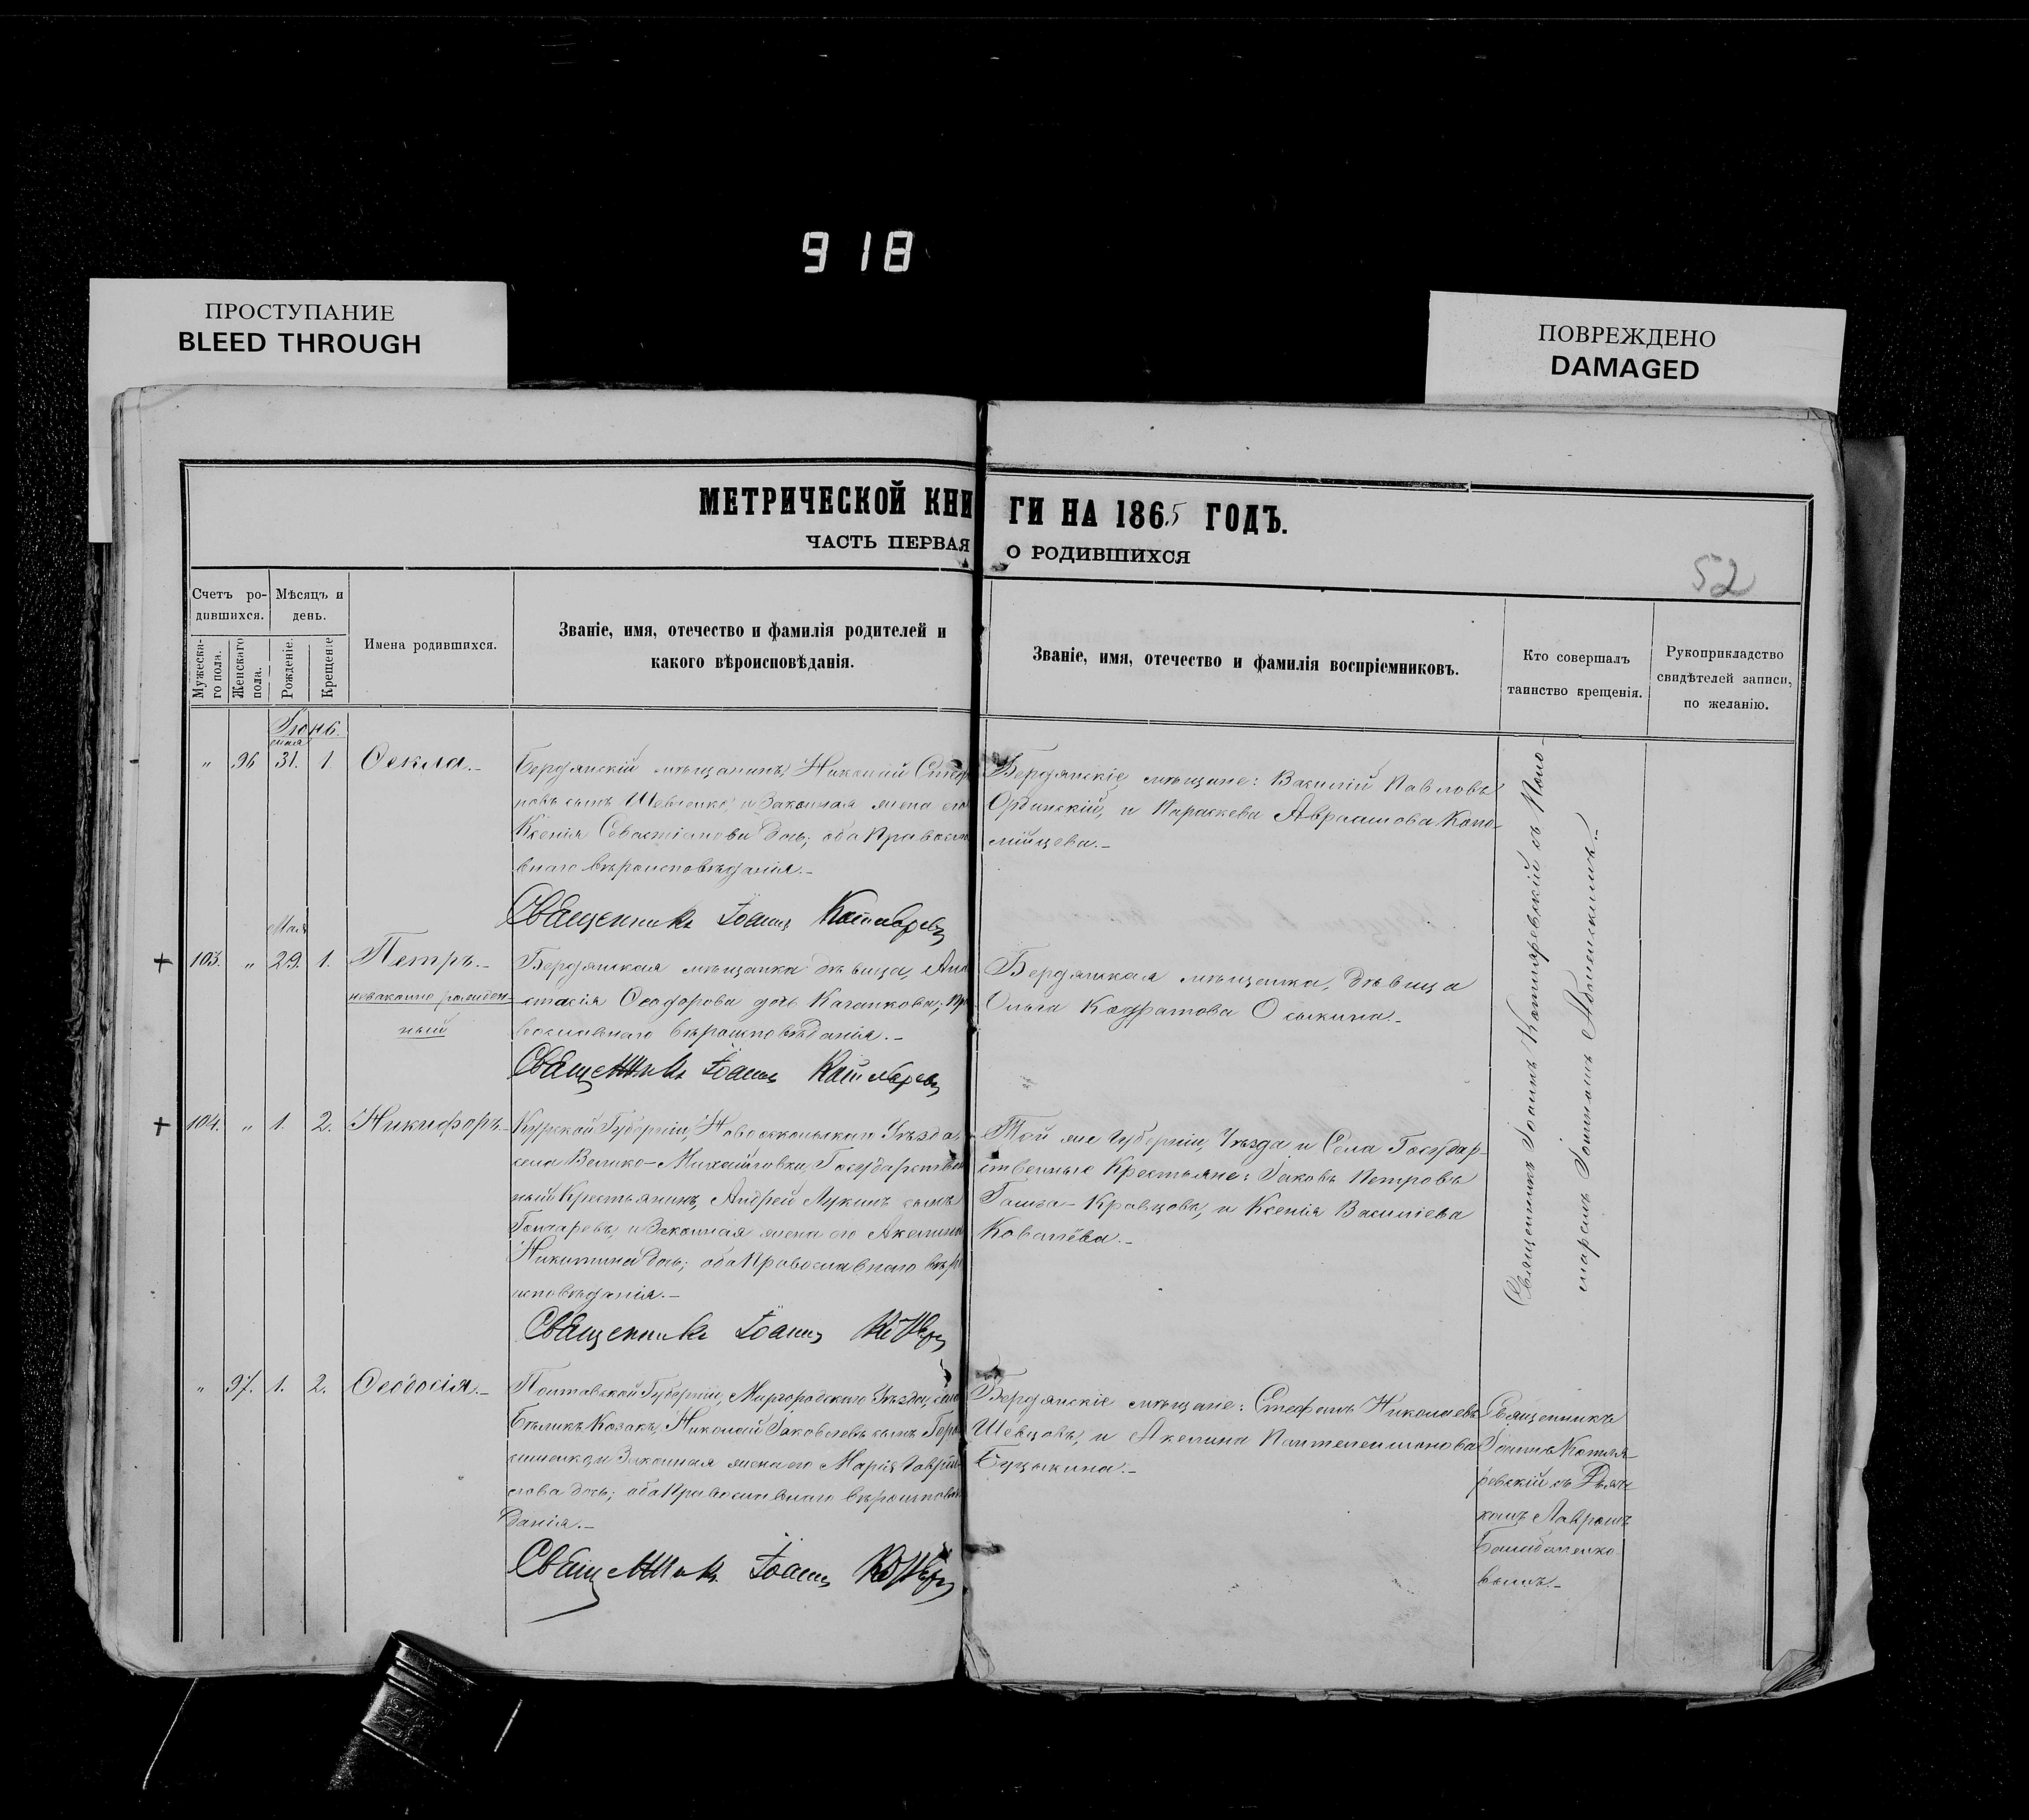 918
ПРОСТУПАНИЕ
BLEED THROUGH
ПОВРЕЖДЕНО
DAMAGED
МЕТРИЧЕСКОЙ КНИГИ НА 1865 ГОДЪ.
ЧАСТЬ ПЕРВАЯ О РОДИВШИХСЯ
52
Счетъ ро-
дившихся.
Мужеска-
го пола.
Женскаго
пола.
Мѣсяцъ и
день.
Рожденіе.
Крещеніе
Имена родившихся.
Званіе, имя, отечество и фамилія родителей и
какого вѣроисповѣданія.
Званіе, имя, отечество и фамилія воспріемниковъ.
Кто совершалъ
таинство крещенія.
Рукоприкладство
свидѣтелей записи,
по желанію.
Іюнь.
мая
„ 96 31. 1. Ѳекла.-
Бердянскій мѣщанинъ, Николай Степа
новъ сынъ Шевченко, и Законная жена его
Ксенія Севастіанова дочь; оба Правосла
внаго вѣроисповѣданія.-
Священникъ Іоаннъ
Бердянскіе мѣщане: Василій Павловъ
и Параскева Авраамова Коло-
мійцева.-
Мая
103. „ 29. 1. Петръ.-
незаконно рожден-
ный
Бердянская мѣщанка дѣвица, Ана
стасія Ѳеодорова дочь; Пра
вославнаго вѣроисповѣданія.-
Священникъ Іоаннъ
Бердянская мѣщанка, дѣвица
Ольга Кодратова Осыкина.-
104. „ 1. 2. Никифоръ.-
Курской Губерніи, Новооскольскаго Уѣзда,
села Велико-Михайловки, Государствен
ный Крестьянинъ, Андрей Лукинъ сынъ
Гончаревъ, и Законная жена его Акелина
Никитина дочь; оба Православнаго вѣро
исповѣданія.-
Священникъ Іоаннъ
Той же Губерніи, Уѣзда и Села Государ-
ственные Крестьяне: Іаковъ Петровъ
Кравцовъ, и Ксенія Василіева
Ковалёва.-
Священникъ Іоаннъ Котляревскій съ Поно-
маремъ Іоанномъ
„ 97. 1. 2. Ѳеодосія.-
Полтавской Губерніи, Миргородскаго Уѣзда, села
Бѣликъ Козакъ, Николай Іаковлевъ сынъ
Законная жена его Марія Гаврі
лова дочь; оба Православнаго вѣроисповѣ
данія.-
Священникъ Іоаннъ
Бердянскіе мѣщане: Стефанъ Николаевъ
Шевцовъ, и Акелина Пантелеимонова
Буцыкина.-
Священникъ
Іоаннъ Котля-
ревскій съ Дьяч-
комъ